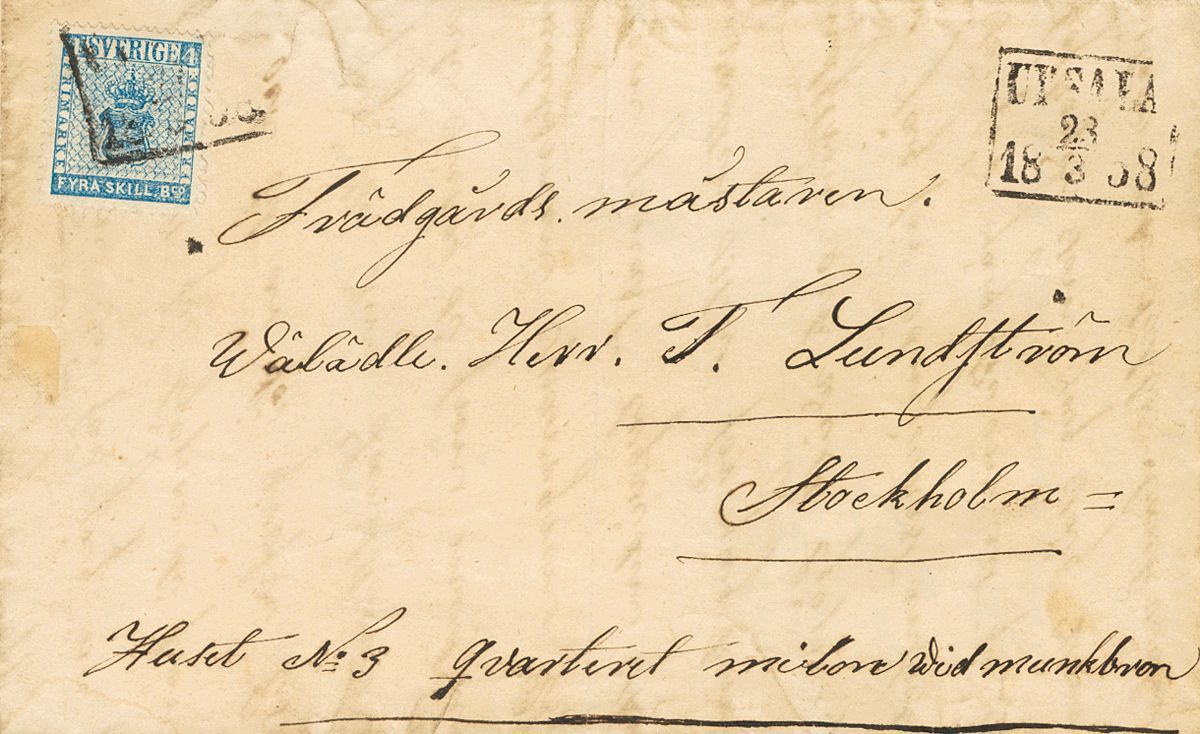 4 SVERIGE 4
FRIMÄRKE
FRIMÄRKE
FYRA SKILL. Bco
UPSALA
23
18 3 58
Trädgårds. mästaren.
Wälädle. Herr. T. Lundström
Stockholm =
Huset No: 3 qvarteret milon wid munkbron